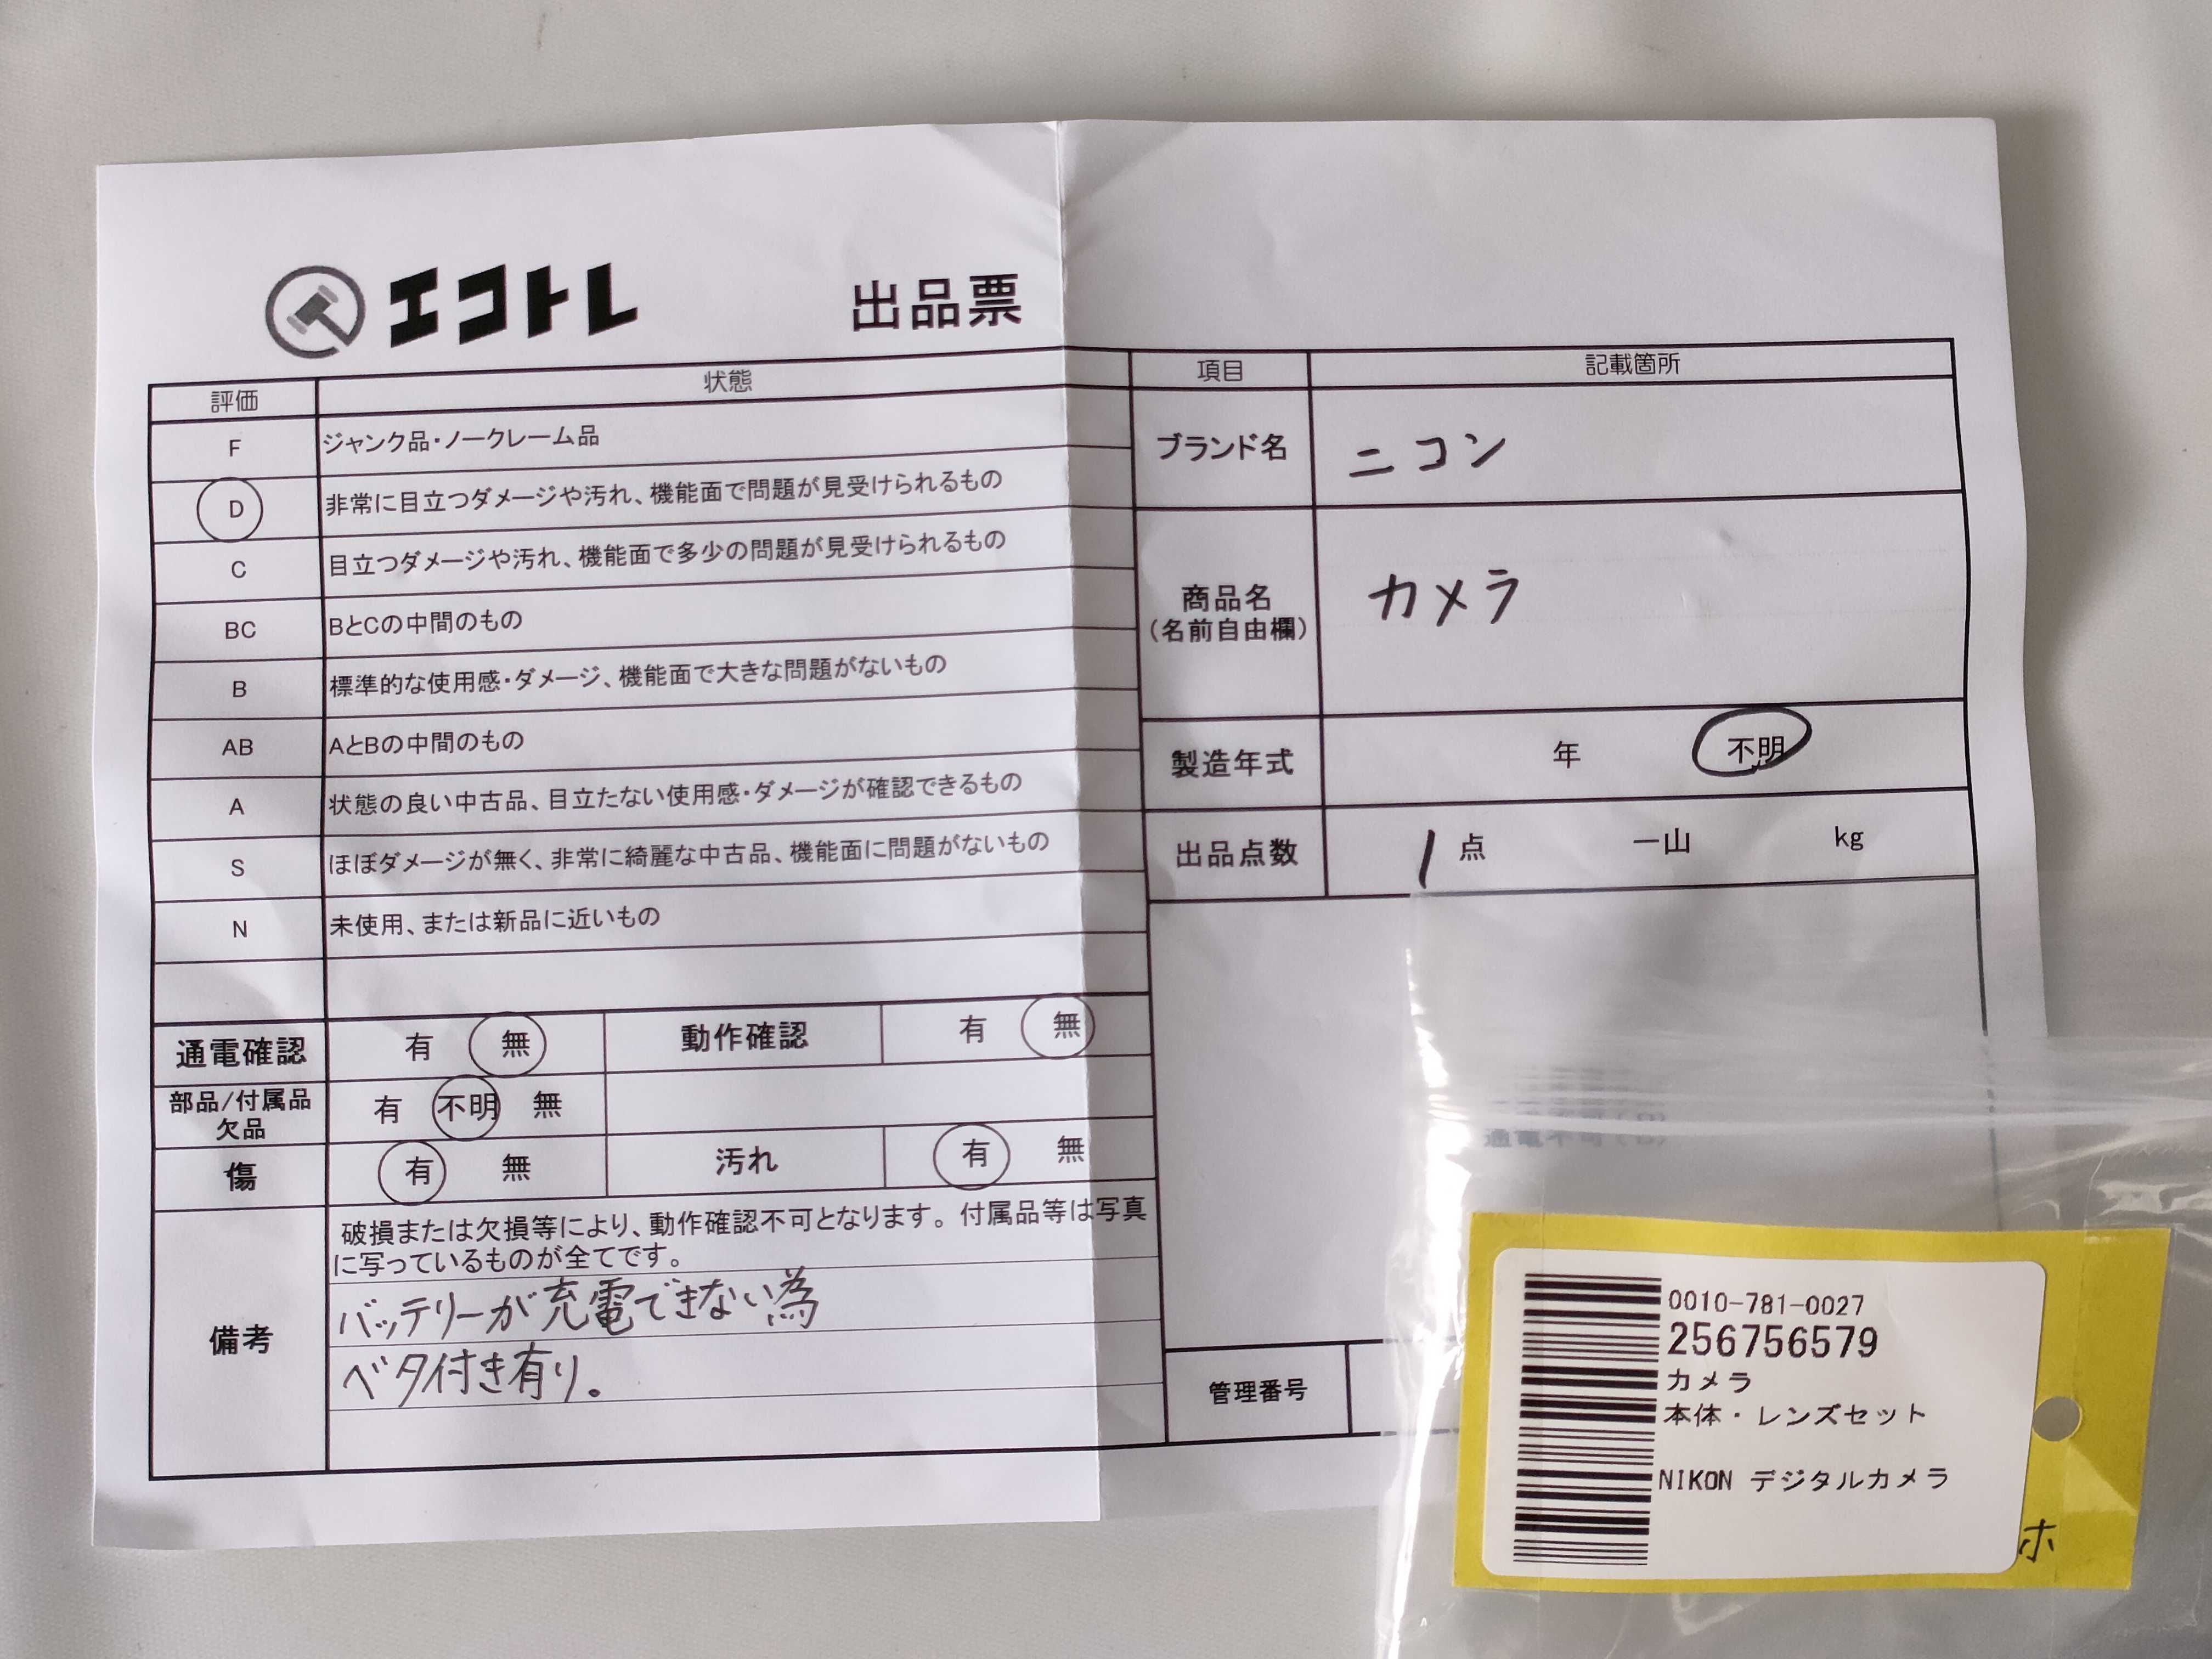 エコトレ 出品票
評価 状態
F ジャンク品・ノークレーム品
D 非常に目立つダメージや汚れ、機能面で問題が見受けられるもの
C 目立つダメージや汚れ、機能面で多少の問題が見受けられるもの
BC BとCの中間のもの
B 標準的な使用感・ダメージ、機能面で大きな問題がないもの
AB AとBの中間のもの
A 状態の良い中古品、目立たない使用感・ダメージが確認できるもの
S ほぼダメージが無く、非常に綺麗な中古品、機能面に問題がないもの
N 未使用、または新品に近いもの
通電確認 有 無 動作確認 有 無
部品/付属品
欠品 有 不明 無
傷 有 無 汚れ 有 無
備考
破損または欠損等により、動作確認不可となります。付属品等は写真
に写っているものが全てです。
バッテリーが充電できない為
ベタ付き有り。
項目 記載箇所
ブランド名 ニコン
商品名
(名前自由欄) カメラ
製造年式 年 不明
出品点数 1 点 一山 kg
管理番号
0010-781-0027
256756579
カメラ
本体・レンズセット
NIKON デジタルカメラ
ホ